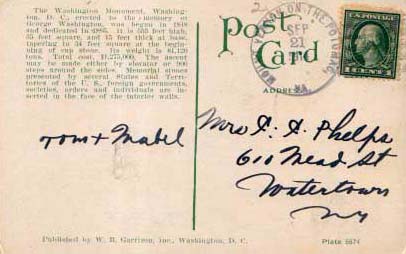 The Washington Monument, Washing-
ton, D. C., erected to the memory of
George Washington, was begun in 1848
and dedicated in 1885. It is 555 feet high,
55 feet square, and 15 feet thick at base,
tapering to 34 feet square at the begin-
ning of cap stone. Its weight is 81,120
tons. Total cost, $1,275,000. The ascent
may be made either by elevator or 900
steps around the core. Memorial stones
presented by several States and Terri-
tories of the U. S., foreign governments,
societies, orders and individuals are in-
serted in the face of the interior walls.
Post
Card
ADDRESS
MOUNT VERNON ON THE POTOMAC,
SEP
21
VA.
U.S. POSTAGE
1 CENT 1
Tom + Mabel
Mrs
Phelps
610 Mead St
Watertown
NY
Published by W. B. Garrison, Inc., Washington, D. C.
Plate 5574